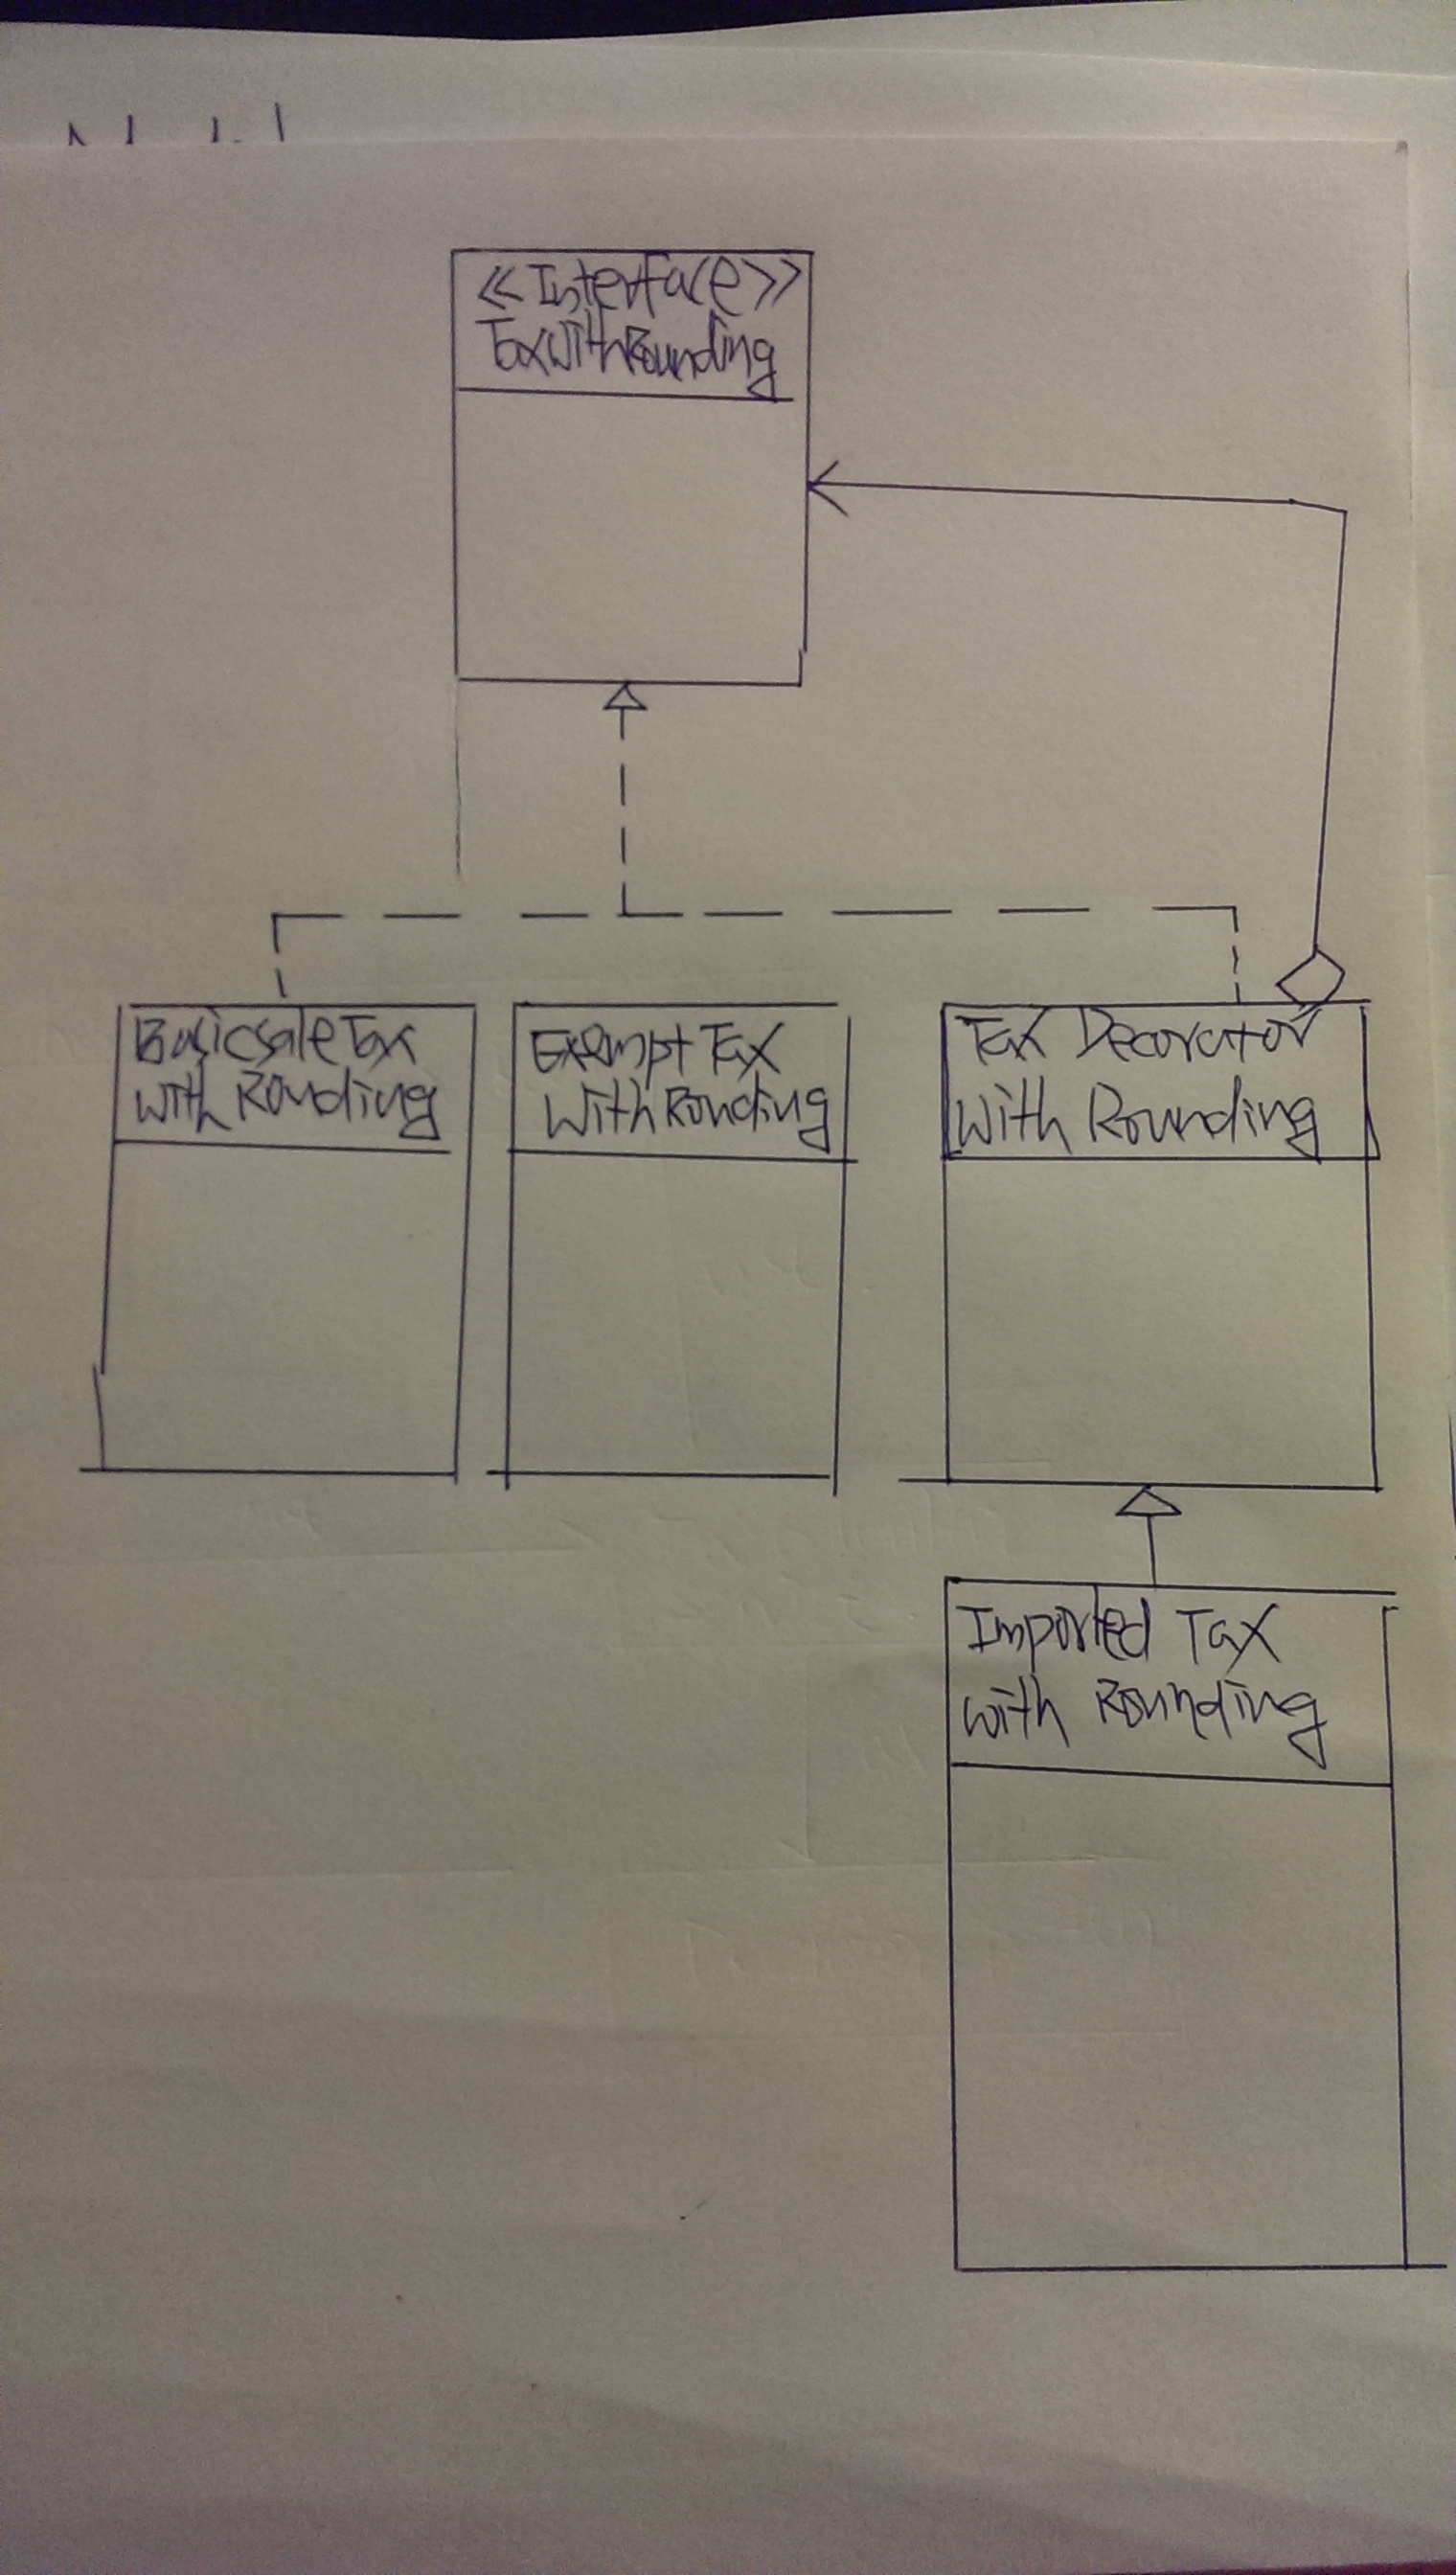 <<Interface>>
TaxWithRounding
BasicsaleTax
with Rounding
Exempt Tax
With Rounding
Tax Decorator
With Rounding
Imported Tax
with Rounding